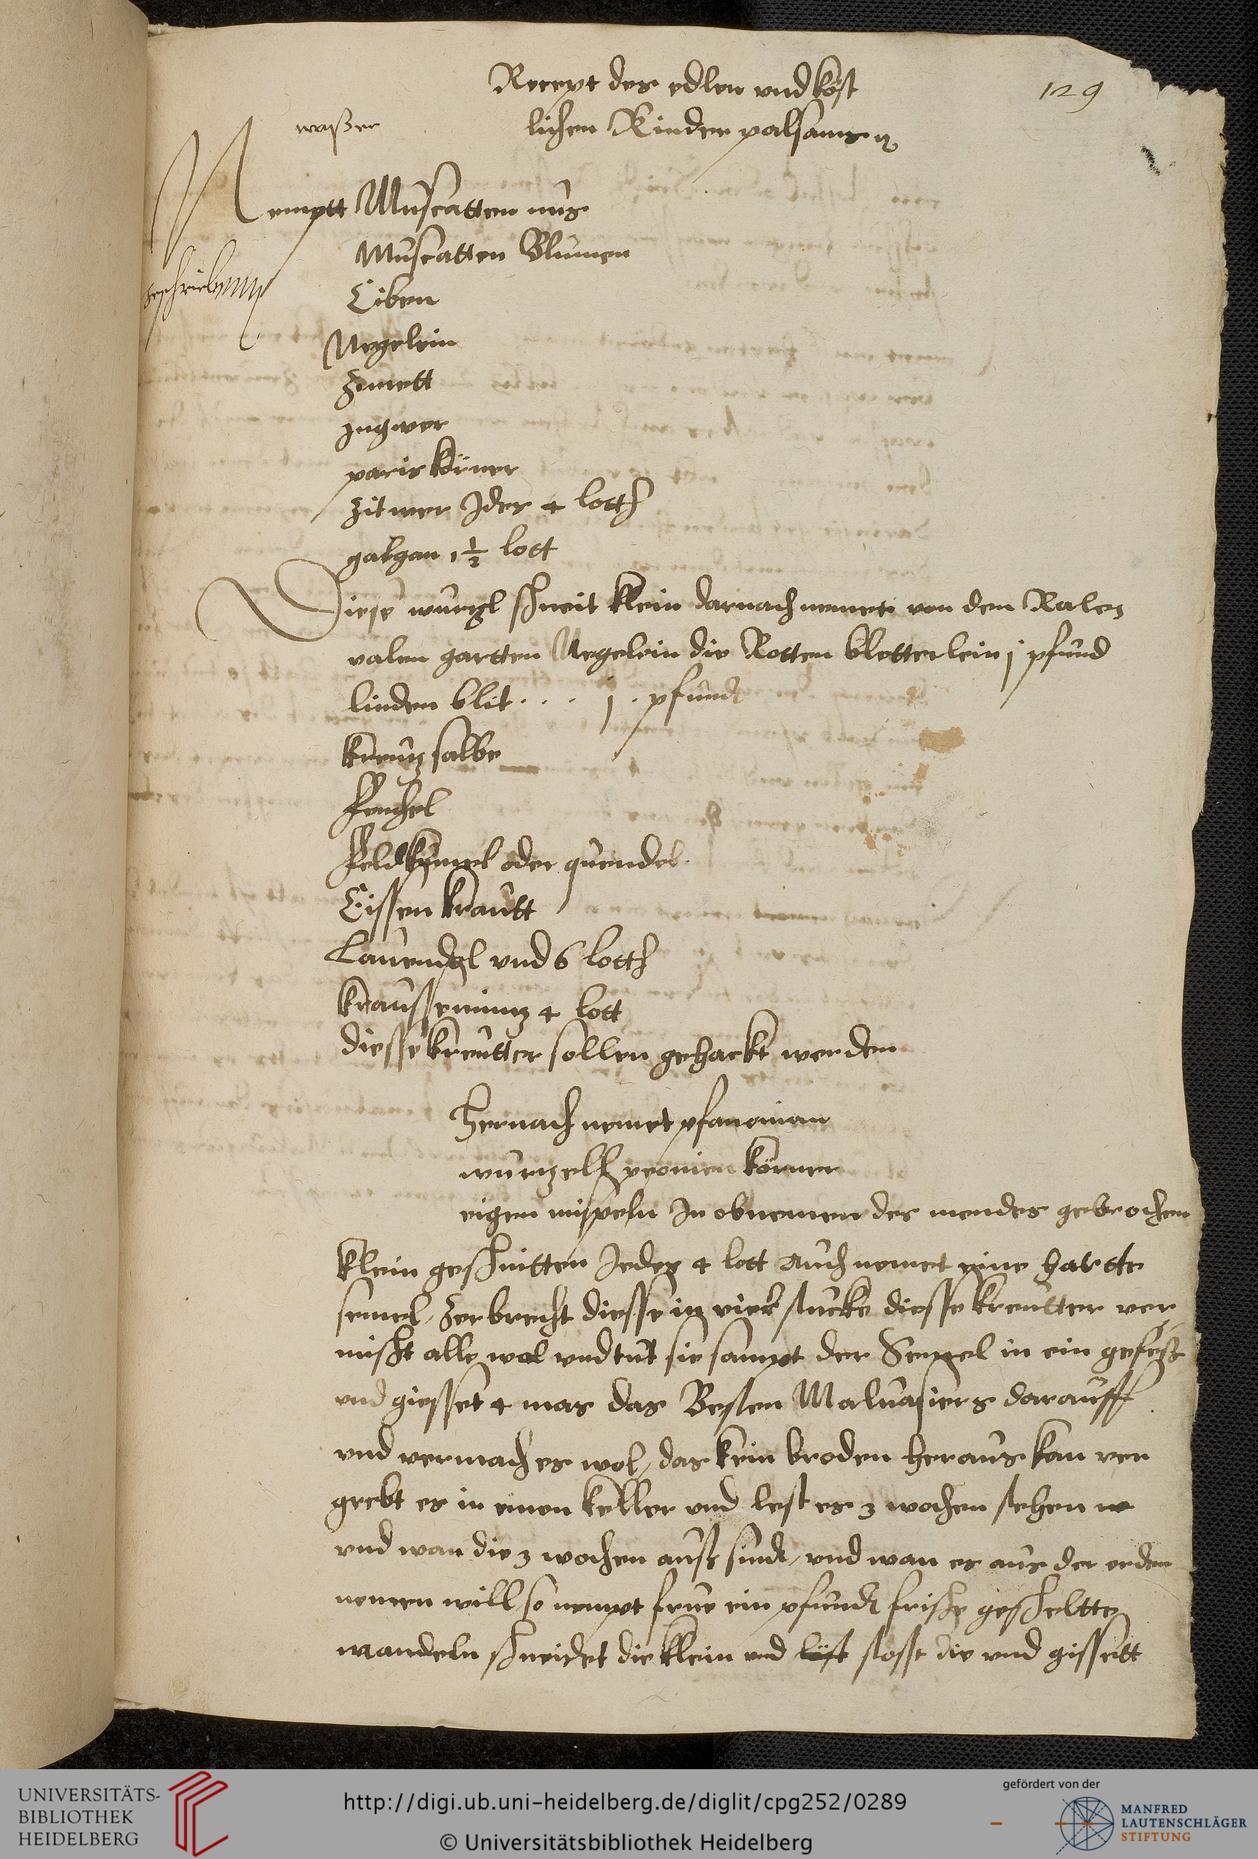 129
Recept des edlen vnd köst
lichen Kinder palsams
waßer
Nemptt Muscatten nus
Muscatten Blumen
beschrieben
Ciben
Negelein
Zimett
Ingwer
paris körner
Zitwer Jdes 4 lotth
galgan 1 1/2 lott
Diese wurtzl schneit klein darnach nemet von den
garten Negelein die Rotten bletterlein j pfund
linden blüt . . . j . pfundt
kreutz salbe
Fenchel
Feldkymel oder quendel
Eissen krautt
Lauendel vnd 6 lotth
kraussemintz 4 lott
diesse kreutter sollen gehackt werden
hernach nemet
wurtzell peonien körner
eigen mispeln In obnemen des mondes gebrochen
klein geschnitten Jedes 4 lott auch nemet eine hartte
semel, zerbrecht diesse in vier stucke diesse kreutter ver
mischt alle wol vnd tut sie sampt der Semel in ein gefeß
vnd giesset 4 mas das Besten Maluasiers darauff
vnd vermach es wol, das kein broden heraus kan ver
grebt es in einen keller vnd lest es 3 wochen stehen
vnd wan die 3 wochen auss sindt, vnd wan es aus der erden
nemen will so nempt frue ein pfundt frische gescheltte
mandeln schneidet die klein vnd stosst die vnd gissett
UNIVERSITÄTS-
BIBLIOTHEK
HEIDELBERG
http://digi.ub.uni-heidelberg.de/diglit/cpg252/0289
© Universitätsbibliothek Heidelberg
gefördert von der
MANFRED
LAUTENSCHLÄGER
STIFTUNG